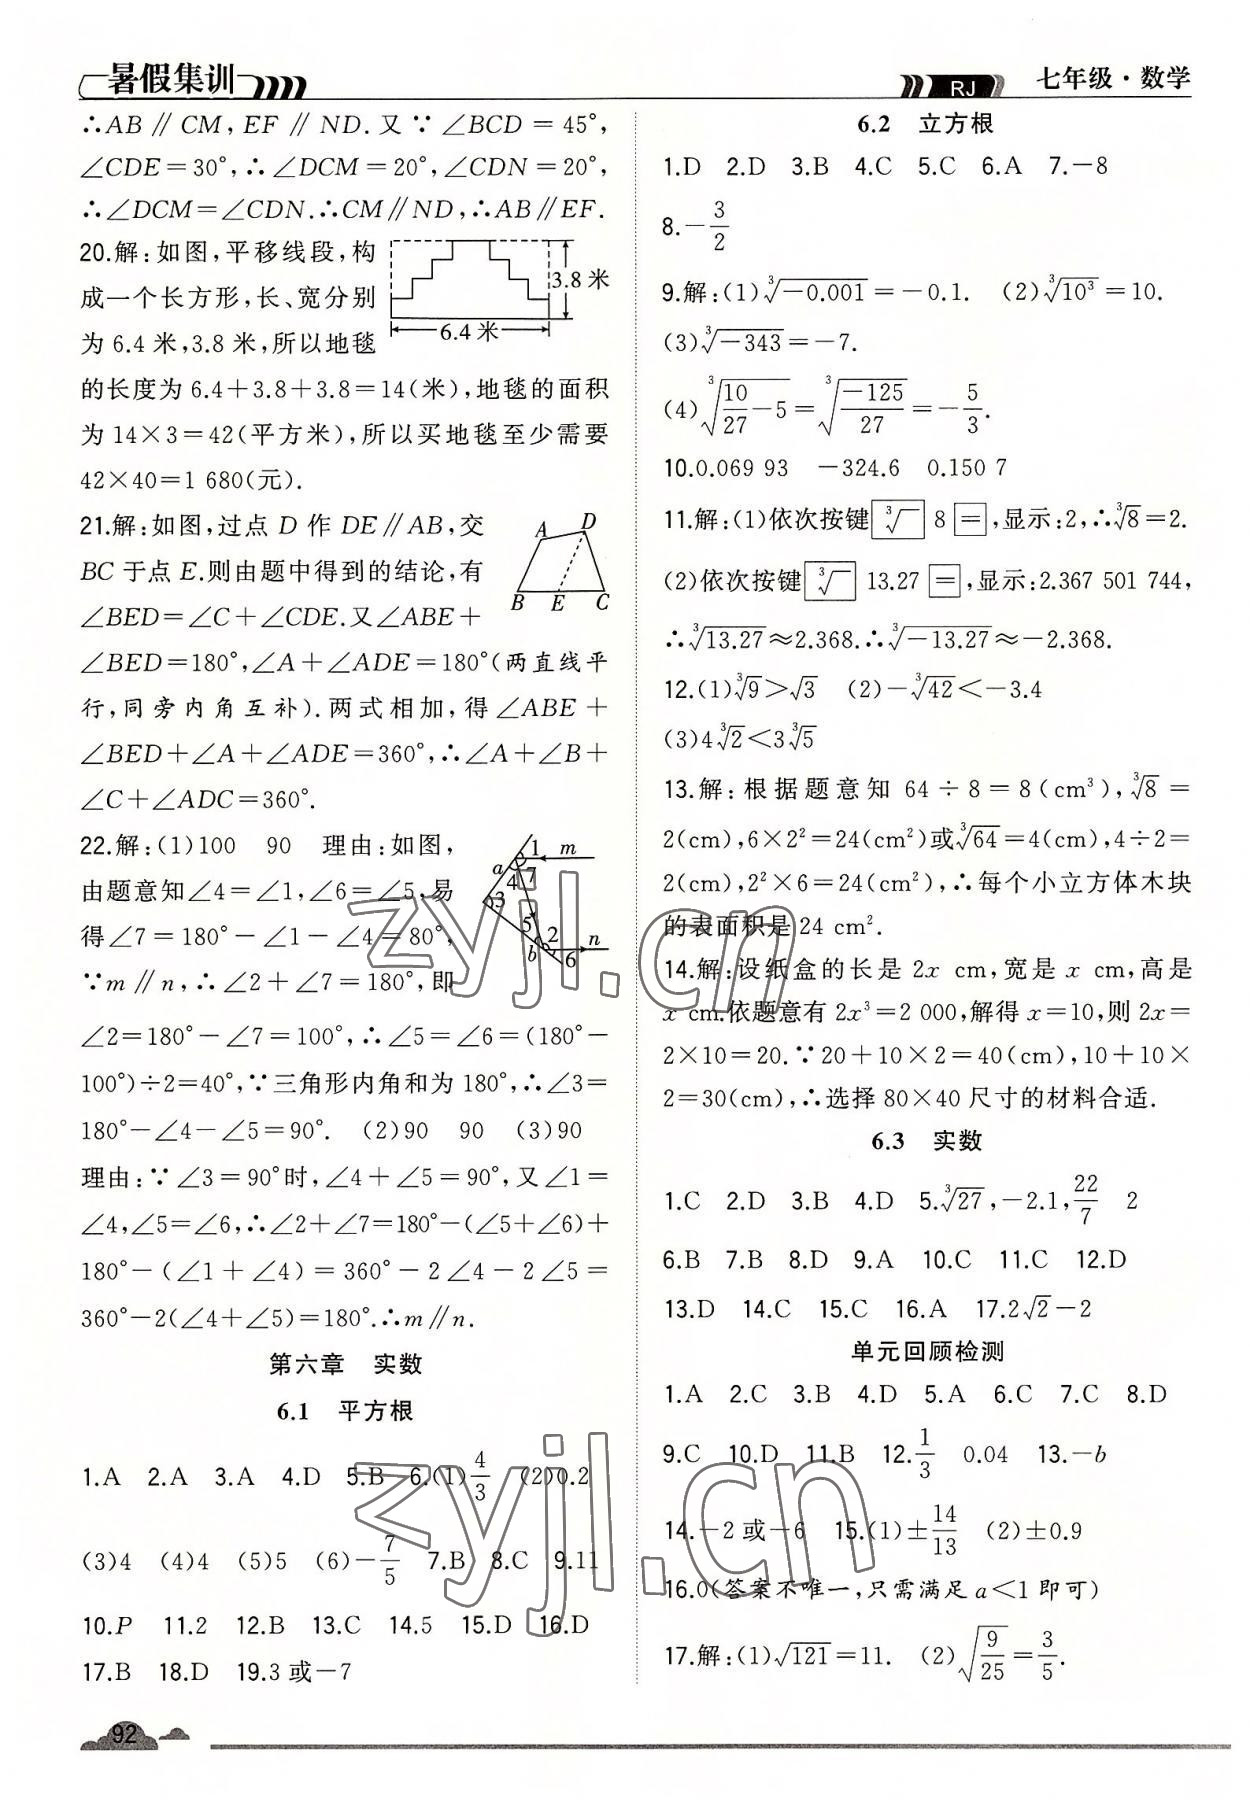 暑假集训
RJ 七年级·数学
∴AB∥CM,EF∥ND.又∵∠BCD=45°,
∠CDE=30°,∴∠DCM=20°,∠CDN=20°,
∴∠DCM=∠CDN.∴CM∥ND,∴AB∥EF.
20.解:如图,平移线段,构
成一个长方形,长、宽分别
为 6.4 米,3.8 米,所以地毯
3.8 米
6.4 米
的长度为 6.4+3.8+3.8=14(米),地毯的面积
为 14×3=42(平方米),所以买地毯至少需要
42×40=1 680(元).
21.解:如图,过点 D 作 DE∥AB,交
BC 于点 E.则由题中得到的结论,有
∠BED=∠C+∠CDE.又∠ABE+
A D
B E C
∠BED=180°,∠A+∠ADE=180°(两直线平
行,同旁内角互补).两式相加,得∠ABE+
∠BED+∠A+∠ADE=360°,∴∠A+∠B+
∠C+∠ADC=360°.
22.解:(1)100 90 理由:如图,
由题意知∠4=∠1,∠6=∠5,易
得∠7=180°-∠1-∠4=80°,
∵m∥n,∴∠2+∠7=180°,即
1 m
a 4 7
3
5 2 n
b 6
∠2=180°-∠7=100°,∴∠5=∠6=(180°-
100°)÷2=40°,∵三角形内角和为 180°,∴∠3=
180°-∠4-∠5=90°. (2)90 90 (3)90
理由:∵∠3=90°时,∠4+∠5=90°,又∠1=
∠4,∠5=∠6,∴∠2+∠7=180°-(∠5+∠6)+
180°-(∠1+∠4)=360°-2∠4-2∠5=
360°-2(∠4+∠5)=180°.∴m∥n.
第六章 实数
6.1 平方根
1.A 2.A 3.A 4.D 5.B 6.(1)4/3 (2)0.2
(3)4 (4)4 (5)5 (6)-7/5 7.B 8.C 9.11
10.P 11.2 12.B 13.C 14.5 15.D 16.D
17.B 18.D 19.3 或-7
6.2 立方根
1.D 2.D 3.B 4.C 5.C 6.A 7.-8
8.-3/2
9.解:(1)∛-0.001=-0.1. (2)∛10³=10.
(3)∛-343=-7.
(4)∛(10/27-5)=∛(-125/27)=-5/3.
10.0.069 93 -324.6 0.150 7
11.解:(1)依次按键 ∛ 8 =,显示:2,∴∛8=2.
(2)依次按键 ∛ 13.27 =,显示:2.367 501 744,
∴∛13.27≈2.368.∴∛-13.27≈-2.368.
12.(1)∛9>√3 (2)-∛42<-3.4
(3)4∛2<3∛5
13.解:根据题意知 64÷8=8(cm³),∛8=
2(cm),6×2²=24(cm²)或∛64=4(cm),4÷2=
2(cm),2²×6=24(cm²),∴每个小立方体木块
的表面积是 24 cm².
14.解:设纸盒的长是 2x cm,宽是 x cm,高是
x cm.依题意有 2x³=2 000,解得 x=10,则 2x=
2×10=20.∵20+10×2=40(cm),10+10×
2=30(cm),∴选择 80×40 尺寸的材料合适.
6.3 实数
1.C 2.D 3.B 4.D 5.∛27,-2.1,22/7 2
6.B 7.B 8.D 9.A 10.C 11.C 12.D
13.D 14.C 15.C 16.A 17.2√2-2
单元回顾检测
1.A 2.C 3.B 4.D 5.A 6.C 7.C 8.D
9.C 10.D 11.B 12.1/3 0.04 13.-b
14.-2 或-6 15.(1)±14/13 (2)±0.9
16.0(答案不唯一,只需满足 a<1 即可)
17.解:(1)√121=11. (2)√(9/25)=3/5.
92
zyjl.cn
zyjl.cn